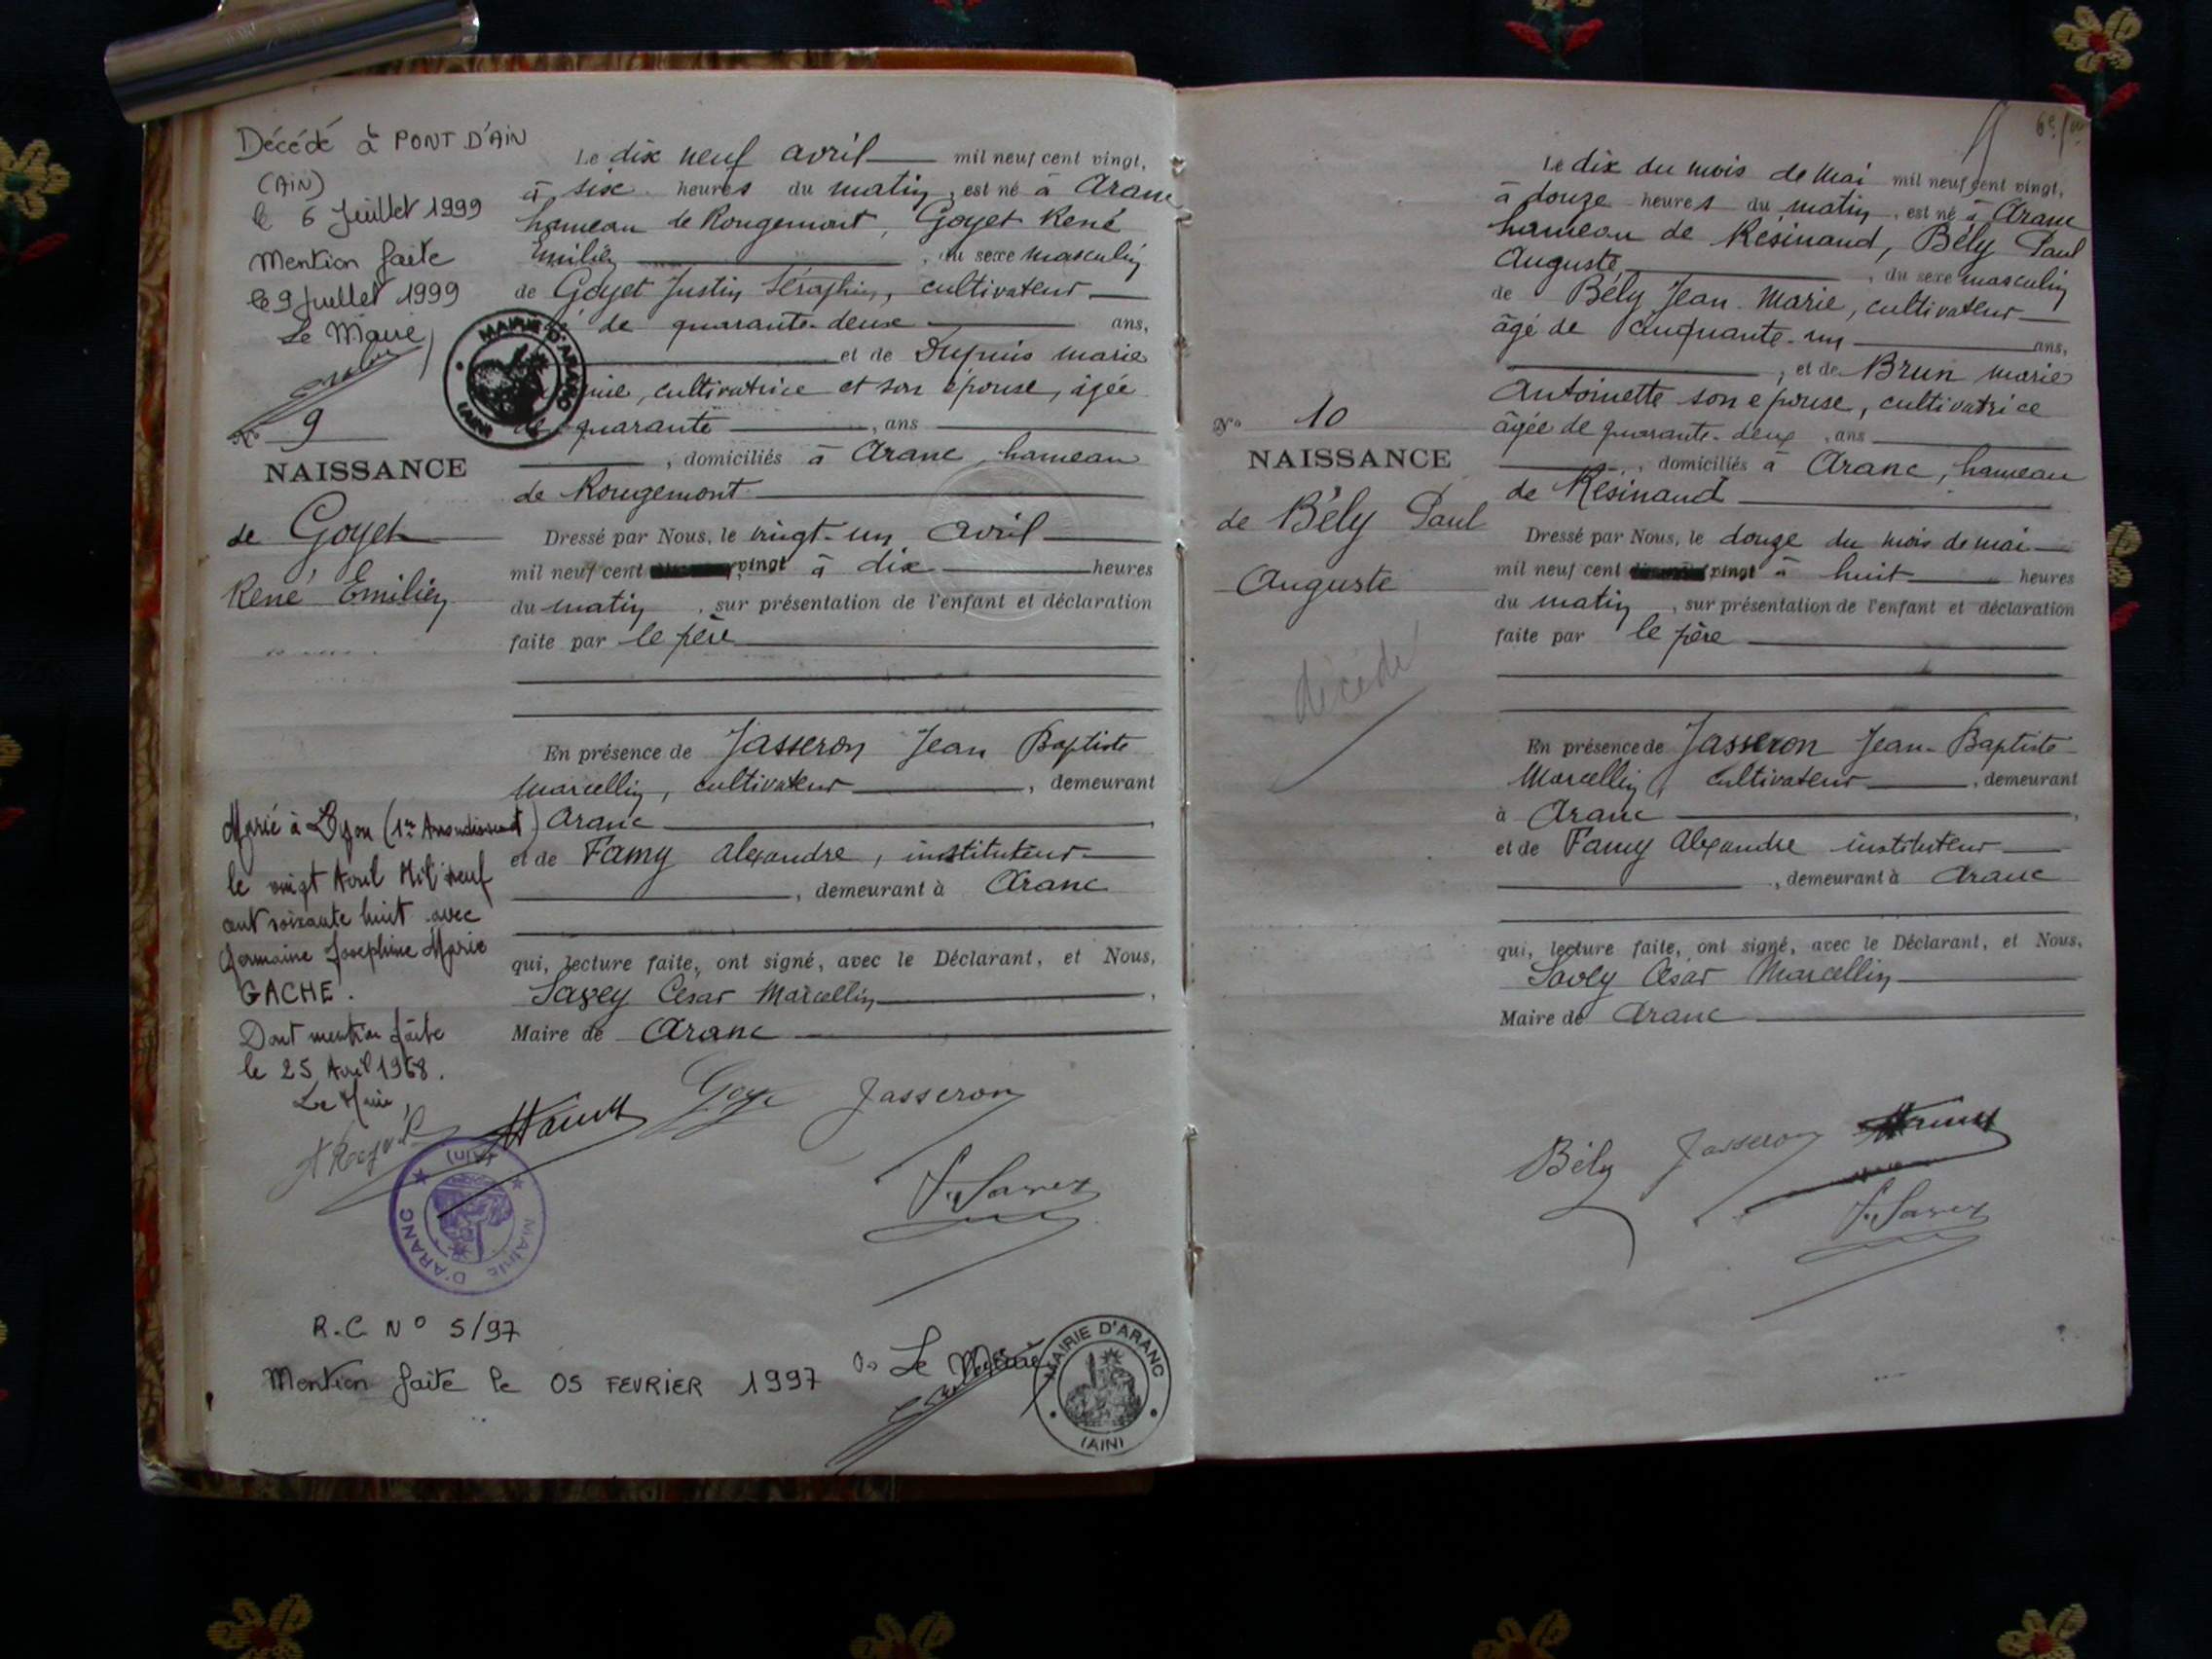 Décédé à PONT D'AIN
(AIN)
le 6 Juillet 1999
Mention faite
le 9 Juillet 1999
Le Maire
MAIRIE D'ARANC
(AIN)
No 9
NAISSANCE
de Goyet
René Emilien
Marié à Lyon (1er Arrondissement)
le vingt Avril Mil neuf
cent soixante huit avec
Germaine Josephine Marie
GACHE.
Dont mention faite
le 25 Avril 1968.
Le Maire,
Le dix neuf avril mil neuf cent vingt,
à six heures du matin, est né à Aranc
hameau de Rougemont, Goyet René
Emilien, du sexe masculin
de Goyet Justin Séraphin, cultivateur
de quarante-deux ans,
et de Dupuis marie
cultivatrice et son épouse, âgée
de quarante, ans
, domiciliés à Aranc, hameau
de Rougemont
Dressé par Nous, le vingt-un avril
mil neuf cent vingt à dix heures
du matin, sur présentation de l'enfant et déclaration
faite par le père
En présence de Jasseron Jean Baptiste
Marcellin, cultivateur, demeurant
Aranc
et de Famy Alexandre, instituteur
, demeurant à Aranc
qui, lecture faite, ont signé, avec le Déclarant, et Nous,
Savey César Marcellin,
Maire de Aranc
Goyet Jasseron
Savey
MAIRIE D'ARANC
(AIN)
R.C. N° 5/97
Mention faite le 05 FEVRIER 1997
Le Maire
MAIRIE D'ARANC
(AIN)
No 10
NAISSANCE
de Bély Paul
Auguste
décédé
Le dix du mois de Mai mil neuf cent vingt,
à douze heures du matin, est né à Aranc
hameau de Resinand, Bély Paul
Auguste, du sexe masculin
de Bély Jean-Marie, cultivateur
âgé de cinquante-un ans,
, et de Brun marie
Antoinette son épouse, cultivatrice
âgée de quarante-deux, ans
, domiciliés à Aranc, hameau
de Résinand
Dressé par Nous, le douze du mois de mai
mil neuf cent vingt à huit heures
du matin, sur présentation de l'enfant et déclaration
faite par le père
En présence de Jasseron Jean-Baptiste
Marcellin, cultivateur, demeurant
à Aranc,
et de Famy Alexandre instituteur
, demeurant à Aranc
qui, lecture faite, ont signé, avec le Déclarant, et Nous,
Savey César Marcellin
Maire de Aranc
Bély Jasseron
Savey